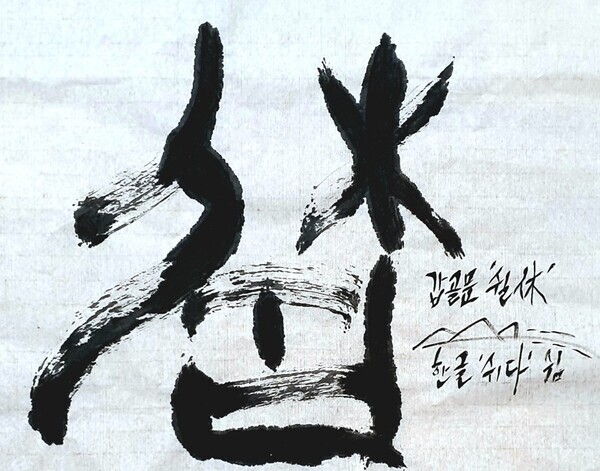 쉼
갑골문 '쉴休'
한글 '쉬다' 쉼